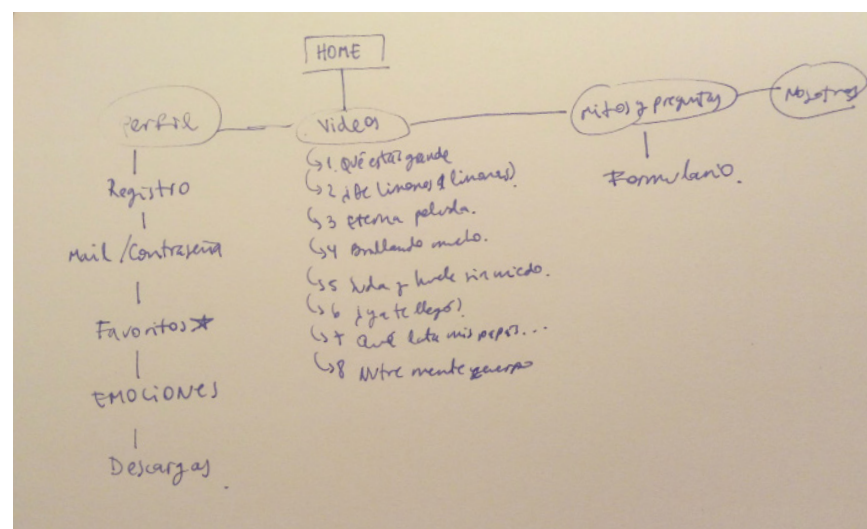 HOME
Perfil
Videos
Mitos y preguntas
Nosotros
Registro
Mail / Contraseña
Favoritos ★
EMOCIONES
Descargas.
1. Qué estás grande
2 ¿De limones a
3 Eterna peluda.
4 Brillando
5 Suda y huele sin miedo.
6 ¿ya te llegó?
7 Qué lata mis papás...
8 Nutre mente y cuerpo
Formulario.